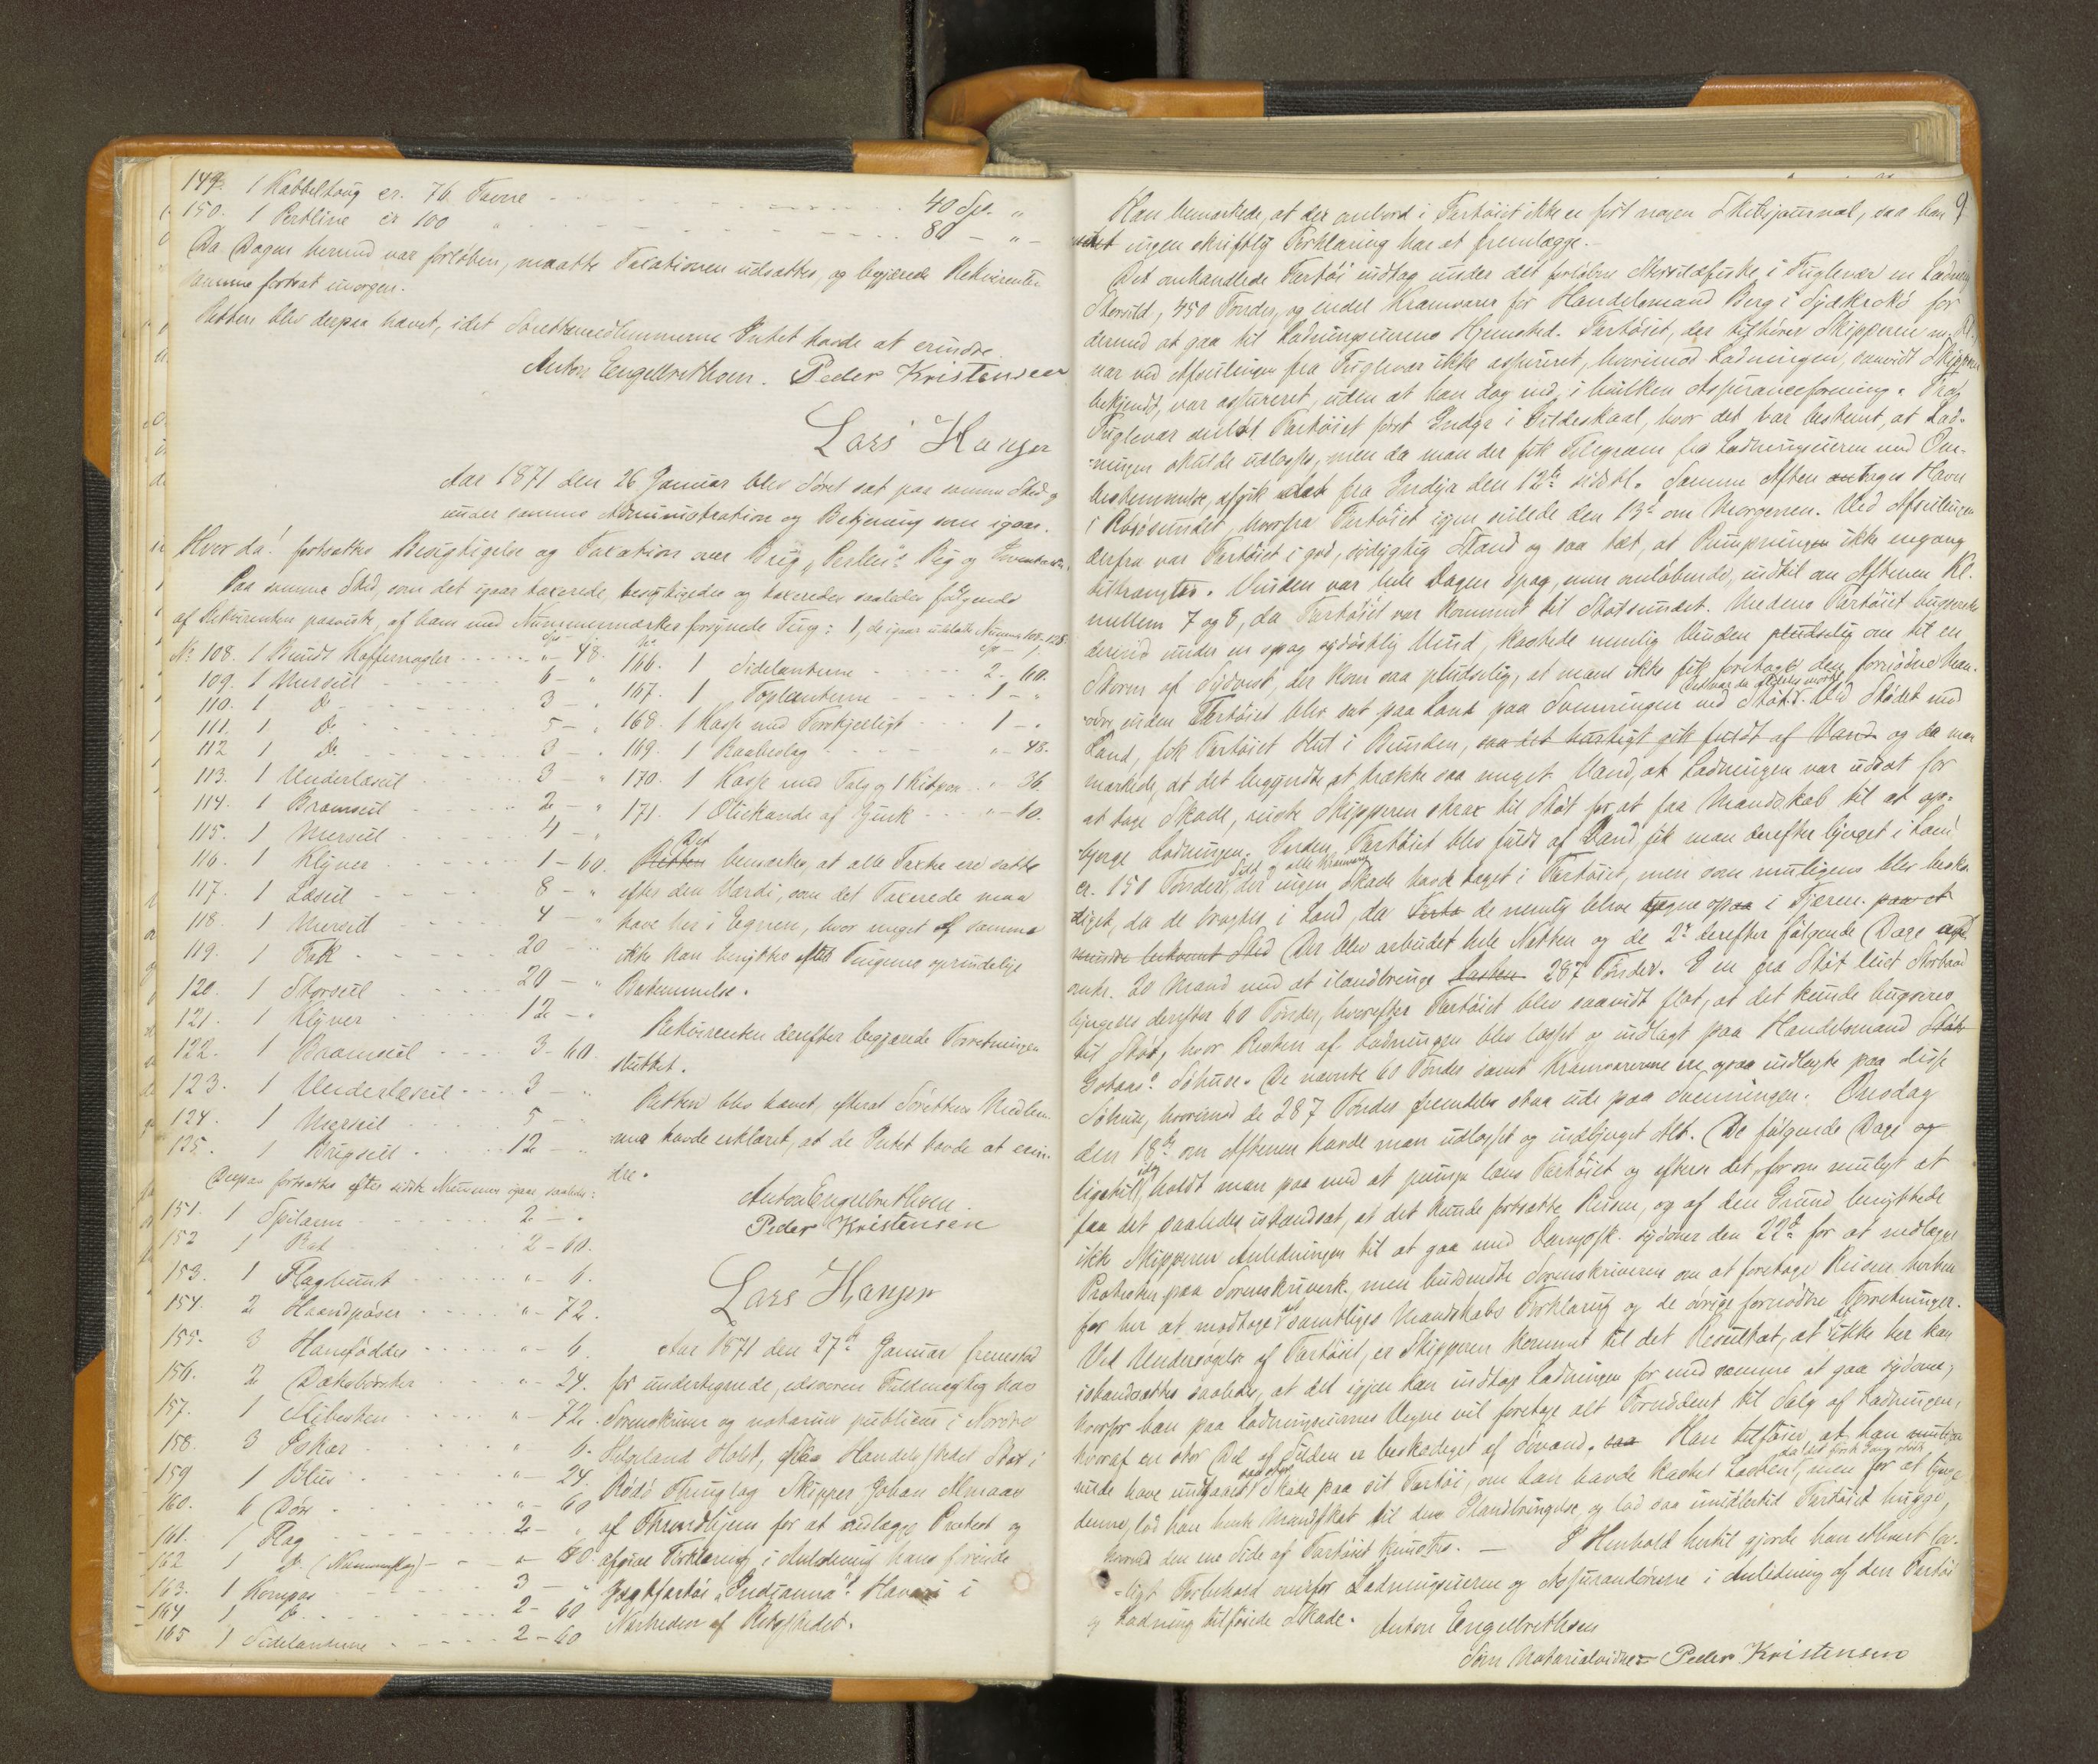 149. 1 Kabbeltoug cr. 76 Favne - - - 40 Spd. "
150. 1 Pertline cr 100 " - - - 80 - " -
Da Dagen hermed var forløben, maatte Taxationen udsættes, og begjærede Rekvirenten
samme fortsat imorgen.
Retten blev derpaa hævet, idet Sørettsmedlemmerne Intet havde at erindre.
Anton Engelbrethsen. Peder Kristensen
Lars Hansen
Aar 1871 den 26 Januar blev Søret sat paa samme Sted og
under samme Administration og Betjening som igaar.
Hvor da! fortsattes Besigtigelse og Taxation over Brig Rig og Inventarium.
Paa samme Sted, som det igaar taxerede, besigtigedes og taxeredes saaledes følgende
af Rekvirenten paaviste, af ham med Nummermærker forsynede Ting: 1, de igaar
No 108. 1 Bundt Koffernagler - - - " - 48.
109. 1 Mersseil - - - 6 - "
110. 1 Do - - - 3 - "
111. 1 Do - - - 5 - "
112 1 Do - - - 3 - "
113. 1 Underlæseil - - - 3 - "
114. 1 Bramseil - - - 2 - "
115. 1 Merseil - - - 4 - "
116. 1 Klyver - - - 1 - 60.
117. 1 Læseil - - - 8 - "
118. 1 Merseil - - - 4 - "
119. 1 Fok - - - 20 - "
120. 1 Storseil - - - 20 - "
121. 1 Klyver - - - 12 - "
122. 1 Bramseil - - - 3 - 60.
123. 1 Underlæseil - - - 3 - "
124. 1 Merseil - - - 5 - "
125. 1 Brigseil - - - 12 - "
Derpaa fortsattes efter sidste Nummer igaar saaledes:
151. 1 Spilarm - - - 2 - "
152 1 - - - 2 - 60.
153. 1 Flaghunt - - - " - 6.
154. 2 Haandpøser - - - " - 72.
155. 3 Hanefødder - - - " - 6.
156. 2 Dæksbørster - - - " - 24.
157. 1 - - - " - 72.
158. 3 Eskar - - - " - 6.
159 1 Blus - - - " - 24.
160. 6 Døre - - - " - 60
161. 1 Flag - - - 2 - "
162 1 Do (Nummerflag) - - - " - 40.
163. 1 Kompas - - - 3 - "
164 1 Do - - - 2 - 60
165 1 Sidelanterne - - - 2 - 60
166. 1 Sidelanterne - - - 2 - 60.
167. 1 Toplanterne - - - 1 - "
168. 1 Kasse med Forskjelligt - - - 1 - "
169. 1 Raabeslag - - - " - 48.
170. 1 Kasse med Talg og 1 - - - " 36.
171. 1 Oliekande af Zink - - - " - 10.
Retten Det bemærkes, at alle Taxter ere satte
efter den Værdi, som det Taxerede maa
have her i Egnen, hvor meget af samme
ikke kan benyttes efter Tingenes oprindelige
Bestemmelse.
Rekvirenten derefter begjærede Forretningen
sluttet.
Retten blev hævet, efterat Sørettens Medlem-
mer havde erklæret, at de Intet havde at erin-
dre.
Anton Engelbrethsen.
Peder Kristensen
Lars Hansen
Aar 1871 den 27de Januar fremstod
for undertegnede, edsvoren Fuldmægtig hos
Sorenskriver og notarius publicus i Nordre
Helgeland Holst, paa Handelsstedet Støt i
Rødø Thinglag Skipper Johan
af Throndhjem for at nedlægge Protest og
afgive Forklaring i Anledning hans førende
Jagtfartøi "Indianna"s Havari i
Nærheden af Stedet.
9
Han bemærkede, at der ombord i Fartøiet ikke er ført nogen Skibsjournal, saa han
ingen skriftlig Forklaring har at fremlægge.
Det omhandlede Fartøi indtog under det forløbne Storsildfiske i Fuglevær en Ladning
Storsild, 450 Tønder, og endel Kramvarer for Handelsmand Berg i for
dermed at gaa til Ladningseierens Hjemsted. Fartøiet, der tilhører Skipperen
var ved Afseilingen fra Fuglevær ikke assureret, hvorimod Ladningen, saavidt Skipperen
bekjendt, var assureret, uden at han dog ved, i hvilken Assuranceforening. Fra
Fuglevær anløb Fartøiet først Indyr i Gildeskaal, hvor det var bestemt, at Lad-
ningen skulde udlosses, men da man der fik Telegram fra Ladningseieren med Om-
bestemmelse, afgik fra Indyr den 12te sidstl. Samme Aften antoges Havn
i , hvorfra Fartøiet igjen seilede den 13de om Morgenen. Ved Afseilingen
derfra var Fartøiet i god, sødygtig Stand og saa tæt, at Pumpningen ikke engang
tiltrængtes. Vinden var hele Dagen spag, men omløbende, indtil om Aftenen Kl.
mellem 7 og 8, da Fartøiet var kommet til Støtsundet. Medens Fartøiet bugseredes
under en spag sydøstlig Vind, kastede nemlig Vinden pludselig om til en
Storm af Sydvest, der kom saa pludselig, at man ikke fik foretaget den fornødne Man-
øvre, inden Fartøiet blev sat paa Land paa Svenningen ved Støt. Ved Stødet mod
Land, fik Fartøiet Hul i Bunden, saa det hurtigt gik fuldt af Vand og da man
mærkede, at det begyndte at trække saa meget Vand, at Ladningen var udsat for
at tage Skade, reiste Skipperen strax til Støt for at faa Mandskab til at op-
bjerge Ladningen. Inden Fartøiet blev fuldt af Vand, fik man derefter bjerget i Land
cr. 150 Tønder Sild og alle Kramvarer, der ingen Skade havde taget i Fartøiet, men som muligens blev beska-
diget, da de bragtes i Land, da de nemlig bleve i Fjæren paa et
mindre bekvemt Sted. Der blev arbeidet hele Natten og de 2de derefter følgende Dage
omtr. 20 Mand med at ilandbringe 287 Tønder. I en fra Støt leiet Storbaad
bjergedes derefter 60 Tønder, hvorefter Fartøiet blev saavidt flot, at det kunde bugseres
til Støt, hvor Resten af Ladningen blev losset og indlagt paa Handelsmand Støt
Søhuse. De nævnte 60 Tønder samt Kramvarerne ere ogsaa indlagte paa disse
Søhuse, hvorimod de 287 Tønder fremdeles staa ude paa Svenningen. Onsdag
den 18de om Aftenen havde man udlosset og indbjerget Alt. De følgende Dage og
ligetil idag holdt man paa med at pumpe læns Fartøiet og efterse det, for om muligt at
faa det saaledes istandsat, at det kunde fortsætte Reisen, og af den Grund benyttede
ikke Skipperen Anledningen til at gaa med Dampsk. sydover den 22de for at nedlægge
Protester paa Sorenskriverk. men Sorenskriveren om at foretage Reisen herhen
for her at modtage samtliges Mandskabs Forklaring og de øvrige fornødne Forretninger.
Ved Undersøgelse af Fartøiet, er Skipperen kommet til det Resultat, at det ikke her kan
istandsættes saaledes, at det igjen kan indtage Ladningen for med samme at gaa sydover,
hvorfor han paa Ladningseiernes Vegne vil foretage alt Fornødent til Salg af Ladningen,
hvoraf en stor Del af Silden er beskadiget af Søvand. saa Han tilføier, at han
vilde have undgaaet saa stor Skade paa sit Fartøi, om han havde kastet Lasten, men for at bjerge
denne, lod han hente Mandskab til dens Ilandbringelse og lod saa imidlertid Fartøiet hugge,
hvorved den ene Side af Fartøiet knustes. — I Henhold hertil gjorde han ethvert lov-
ligt Forbehold overfor Ladningseieren og Assurandørerne i Anledning af den Fartøi
og Ladning tilføiede Skade.
Anton Engelbrethsen
Som Notarialvidner Peder Kristensen